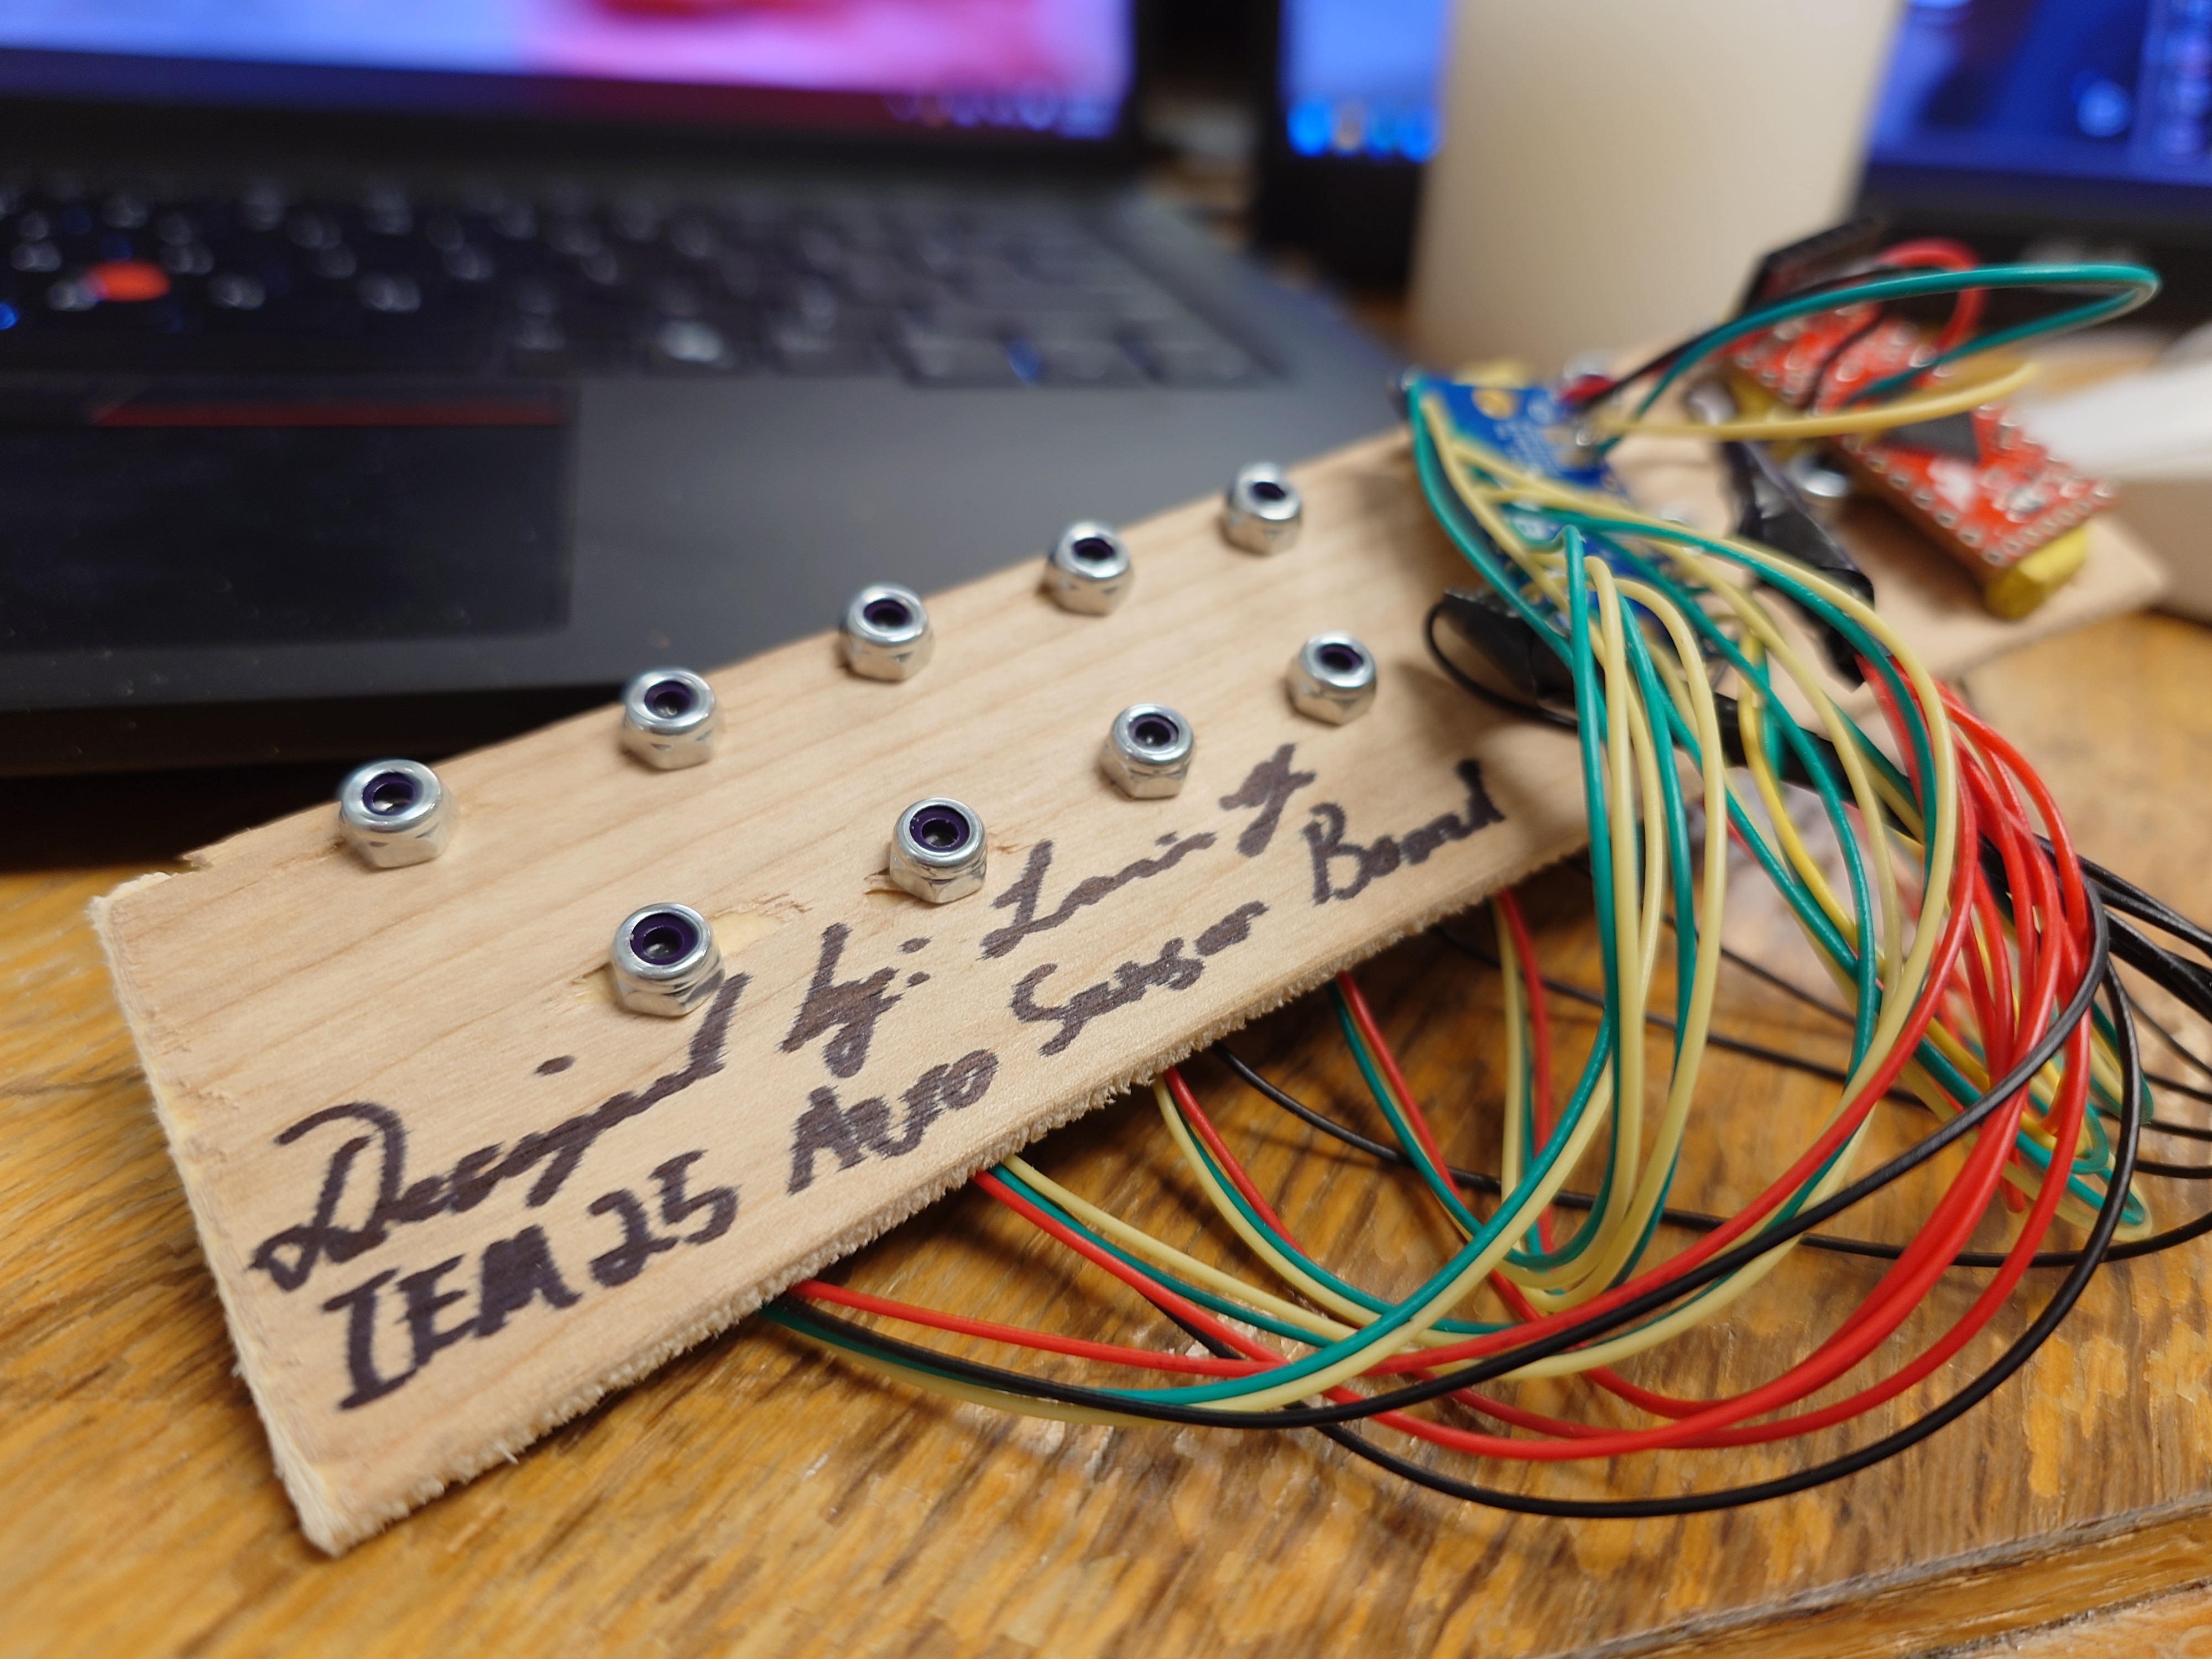 Designed by:
IEM25 Aero Sensor Board